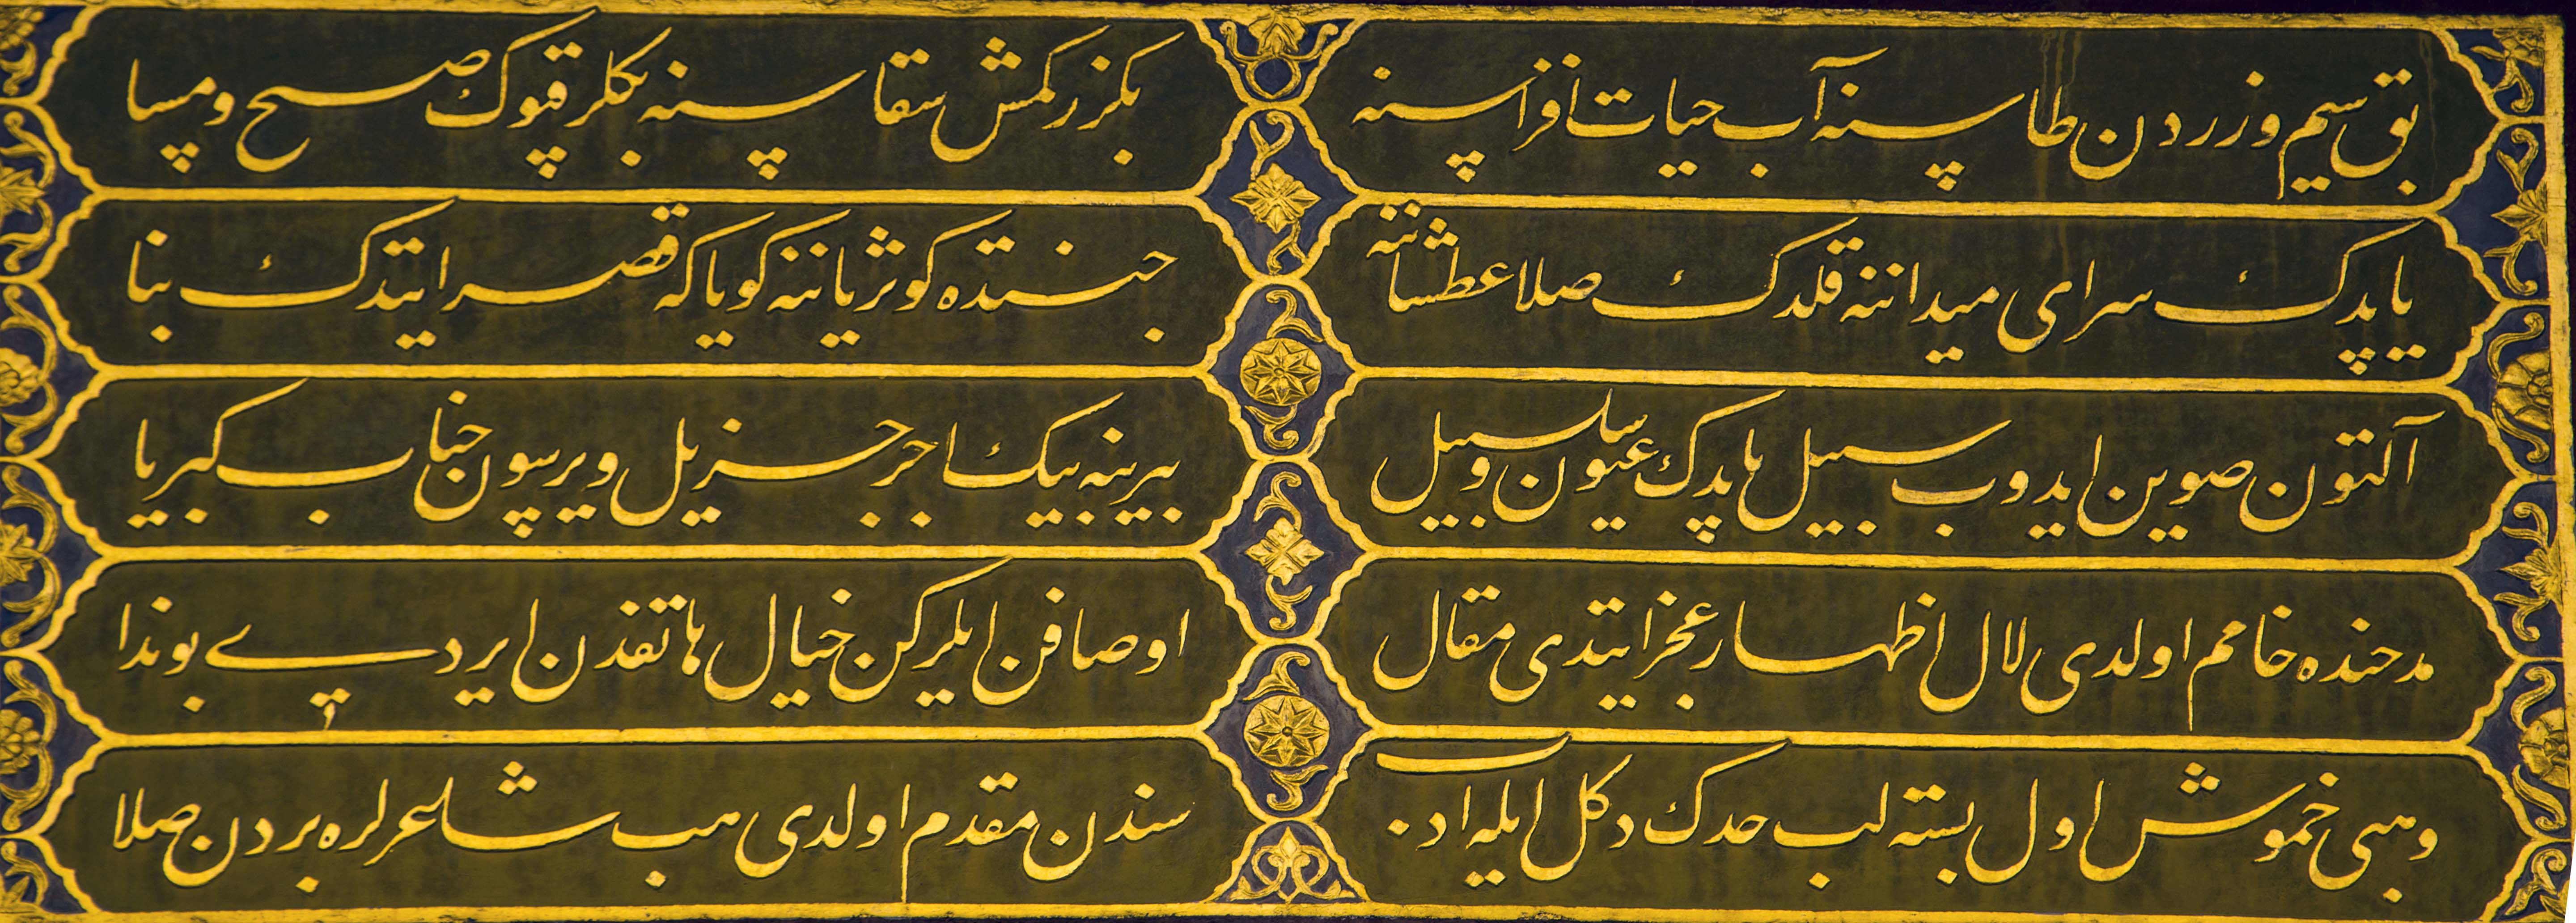 بق سیم و زردن طاسنه آب حیات افزاسنه
بکزر کمش سقاسنه بکلر قپوک صبح و مسا
یاپدک سرای میداننه قلدک صلا عطشاننه
جنتده کوثر یاننه کویا که قصر ایتدک بنا
آلتون صوین ایدوب سبیل یاپدک عیون سلسبیل
بیرینه بیک اجر جزیل ویرسون جناب کبریا
مدحنده خامم اولدی لال اظهار عجز ایتدی مقال
اوصافن ایلرکن خیال هاتفدن ایردی بو ندا
وهبی خموش اول بسته لب حدک دکل ایله ادب
سندن مقدم اولدی هب شاعرلره بردن صلا